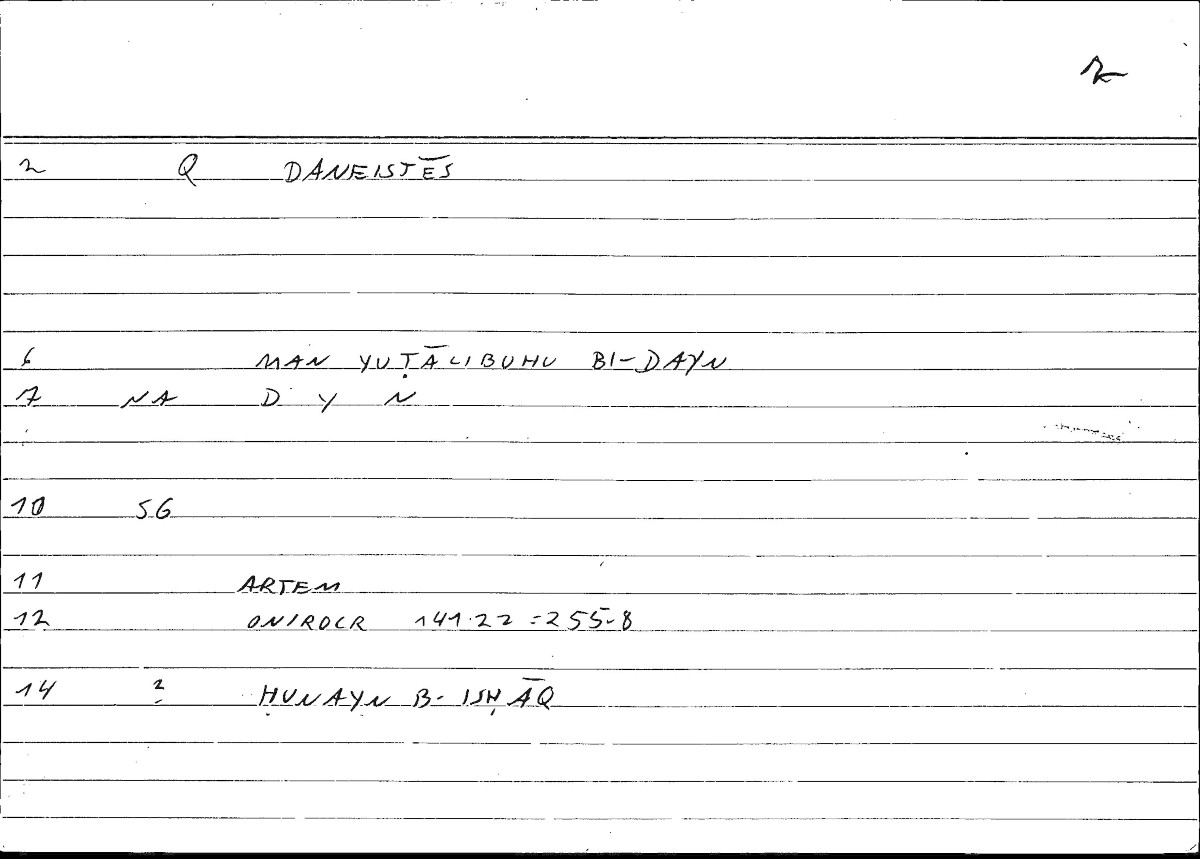 2 Q DANEISTĒS
6 MAN YUṬĀLIBUHU BI-DAYN
7 NA D Y N
10 SG
11 ARTEM
12 ONIROCR 141.22 = 255.8
14 2 ḤUNAYN B. ISḤĀQ